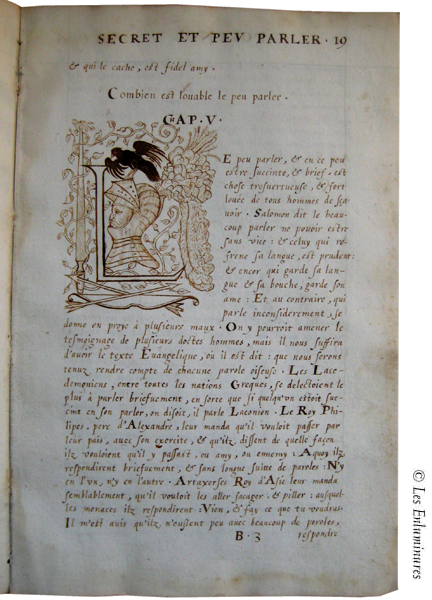 SECRET ET PEV PARLER · 19
& qui le cache, est fidel amy ·
Combien est louable le peu parler ·
CHAP · V ·
LE peu parler, & en ce peu
estre succinte, & brief, est
chose tresuertueuse, & fort
louée de tous hommes de sça
uoir · Salomon dit le beau-
coup parler ne pouoir estre
sans vice : & celuy qui re-
frene sa langue, est prudent:
& encor qui garde sa lan-
gue & sa bouche, garde son
ame : Et au contraire, qui
parle inconsiderement, se
donne en proye à plusieurs maux · On y pourroit amener le
tesmoignage de plusieurs doctes hommes, mais il nous suffira
d'auoir le texte Euangelique, où il est dit : que nous serons
tenuz rendre compte de chacune parole oiseuse · Les Lace-
demoniens, entre toutes les nations Greques, se delectoient le
plus à parler briefuement, en sorte que si quelqu'vn estoit suc-
cint en son parler, on disoit, il parle Laconien · Le Roy Phi-
lipes, pere d'Alexandre, leur manda qu'il vouloit passer par
leur païs, auec son exercite, & qu'ilz dissent de quelle façon
ilz vouloient qu'il y passast, ou amy, ou ennemy : Aquoy ilz
respondirent briefuement, & sans longue suite de paroles : N'y
en l'vn, n'y en l'autre · Artaxerses Roy d'Asie leur manda
semblablement, qu'il vouloit les aller sacager, & piller : ausquel-
les menaces ilz respondirent : Vien, & fay ce que tu voudras·
Il m'est auis qu'ilz n'eussent peu auec beaucoup de paroles,
B · 3 respondre
© Les Enluminures